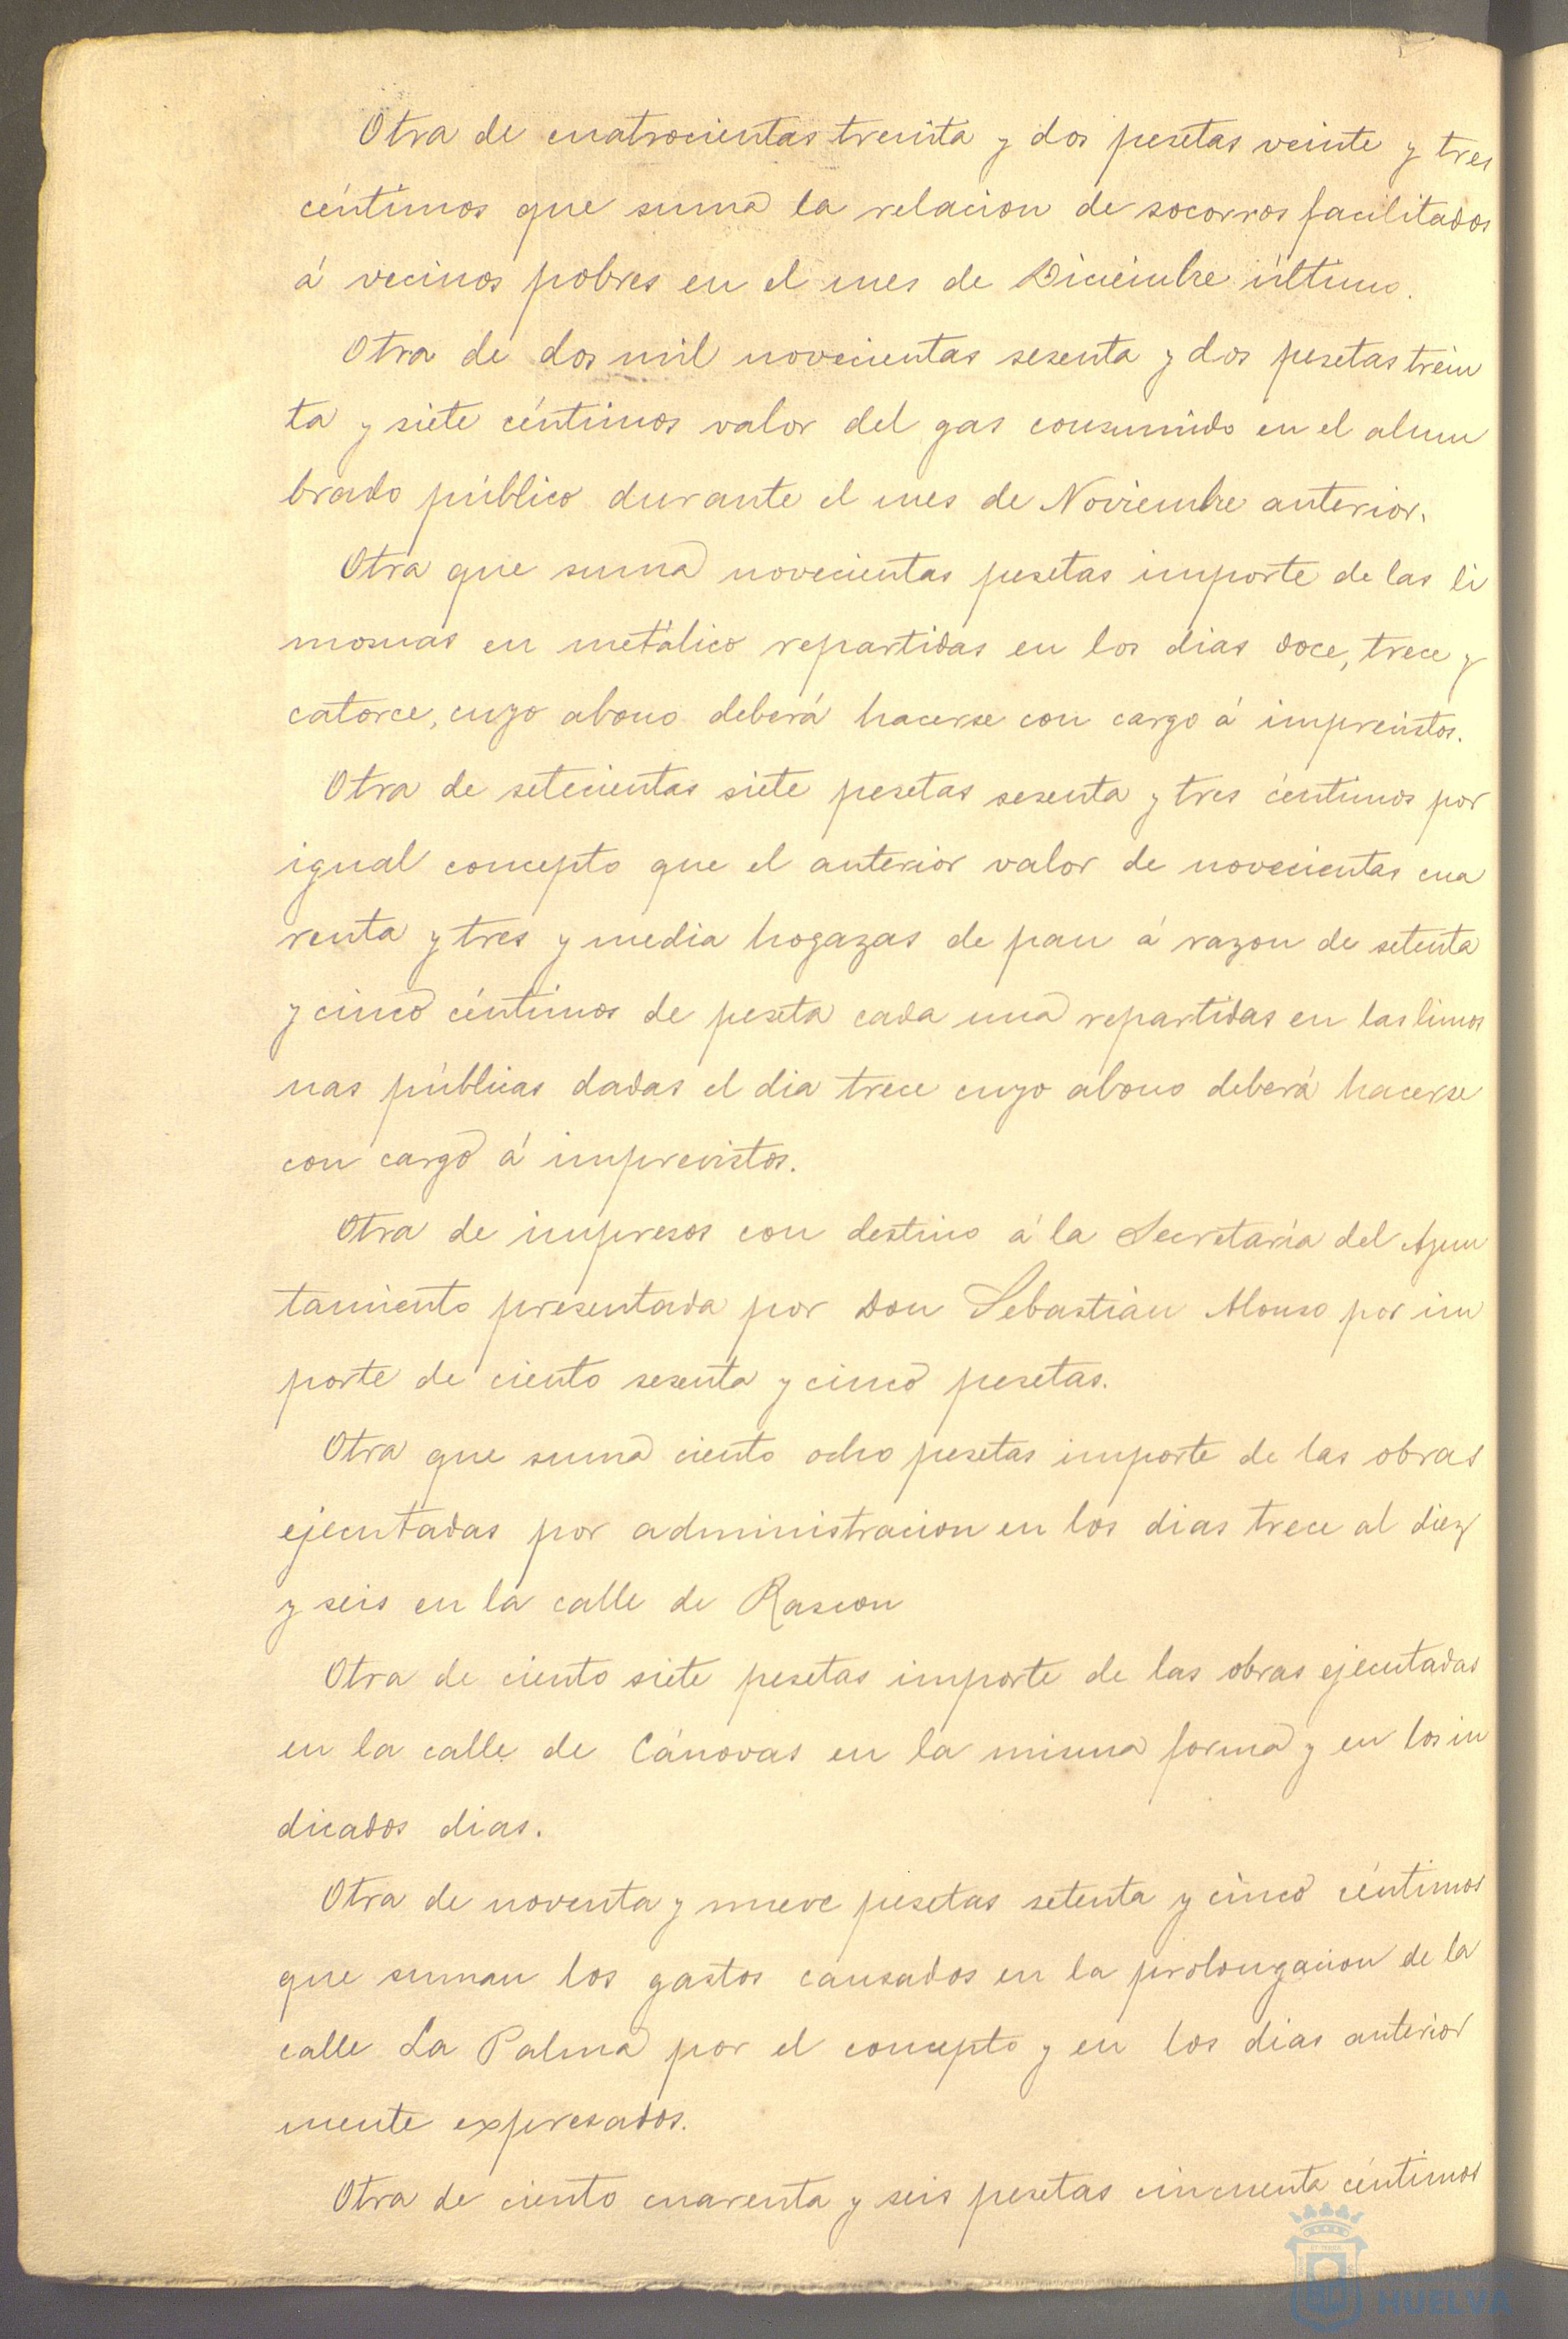 Otra de cuatrocientas treinta y dos pesetas veinte y tres
céntimos que suma la relacion de socorros facilitados
á vecinos pobres en el mes de Diciembre último.
Otra de dos mil novecientas sesenta y dos pesetas trein
ta y siete céntimos valor del gas consumido en el alum
brado público durante el mes de Noviembre anterior.
Otra que suma novecientas pesetas importe de las li
mosnas en metálico repartidas en los dias doce, trece y
catorce, cuyo abono deberá hacerse con cargo á imprevistos.
Otra de setecientas siete pesetas sesenta y tres céntimos por
igual concepto que el anterior valor de novecientas cua
renta y tres y media hogazas de pan á razon de setenta
y cinco céntimos de peseta cada una repartidas en las limos
nas públicas dadas el dia trece cuyo abono deberá hacerse
con cargo á imprevistos.
Otra de impresos con destino á la Secretaría del Ayun
tamiento presentada por Don Sebastián Alonso por im
porte de ciento sesenta y cinco pesetas.
Otra que suma ciento ocho pesetas importe de las obras
ejecutadas por administracion en los dias trece al diez
y seis en la calle de Rascon
Otra de ciento siete pesetas importe de las obras ejecutadas
en la calle de Cánovas en la misma forma y en los in
dicados dias.
Otra de noventa y nueve pesetas setenta y cinco céntimos
que suman los gastos causados en la prolongacion de la
calle La Palma por el concepto y en los dias anterior
mente expresados.
Otra de ciento cuarenta y seis pesetas cincuenta céntimos
HUELVA